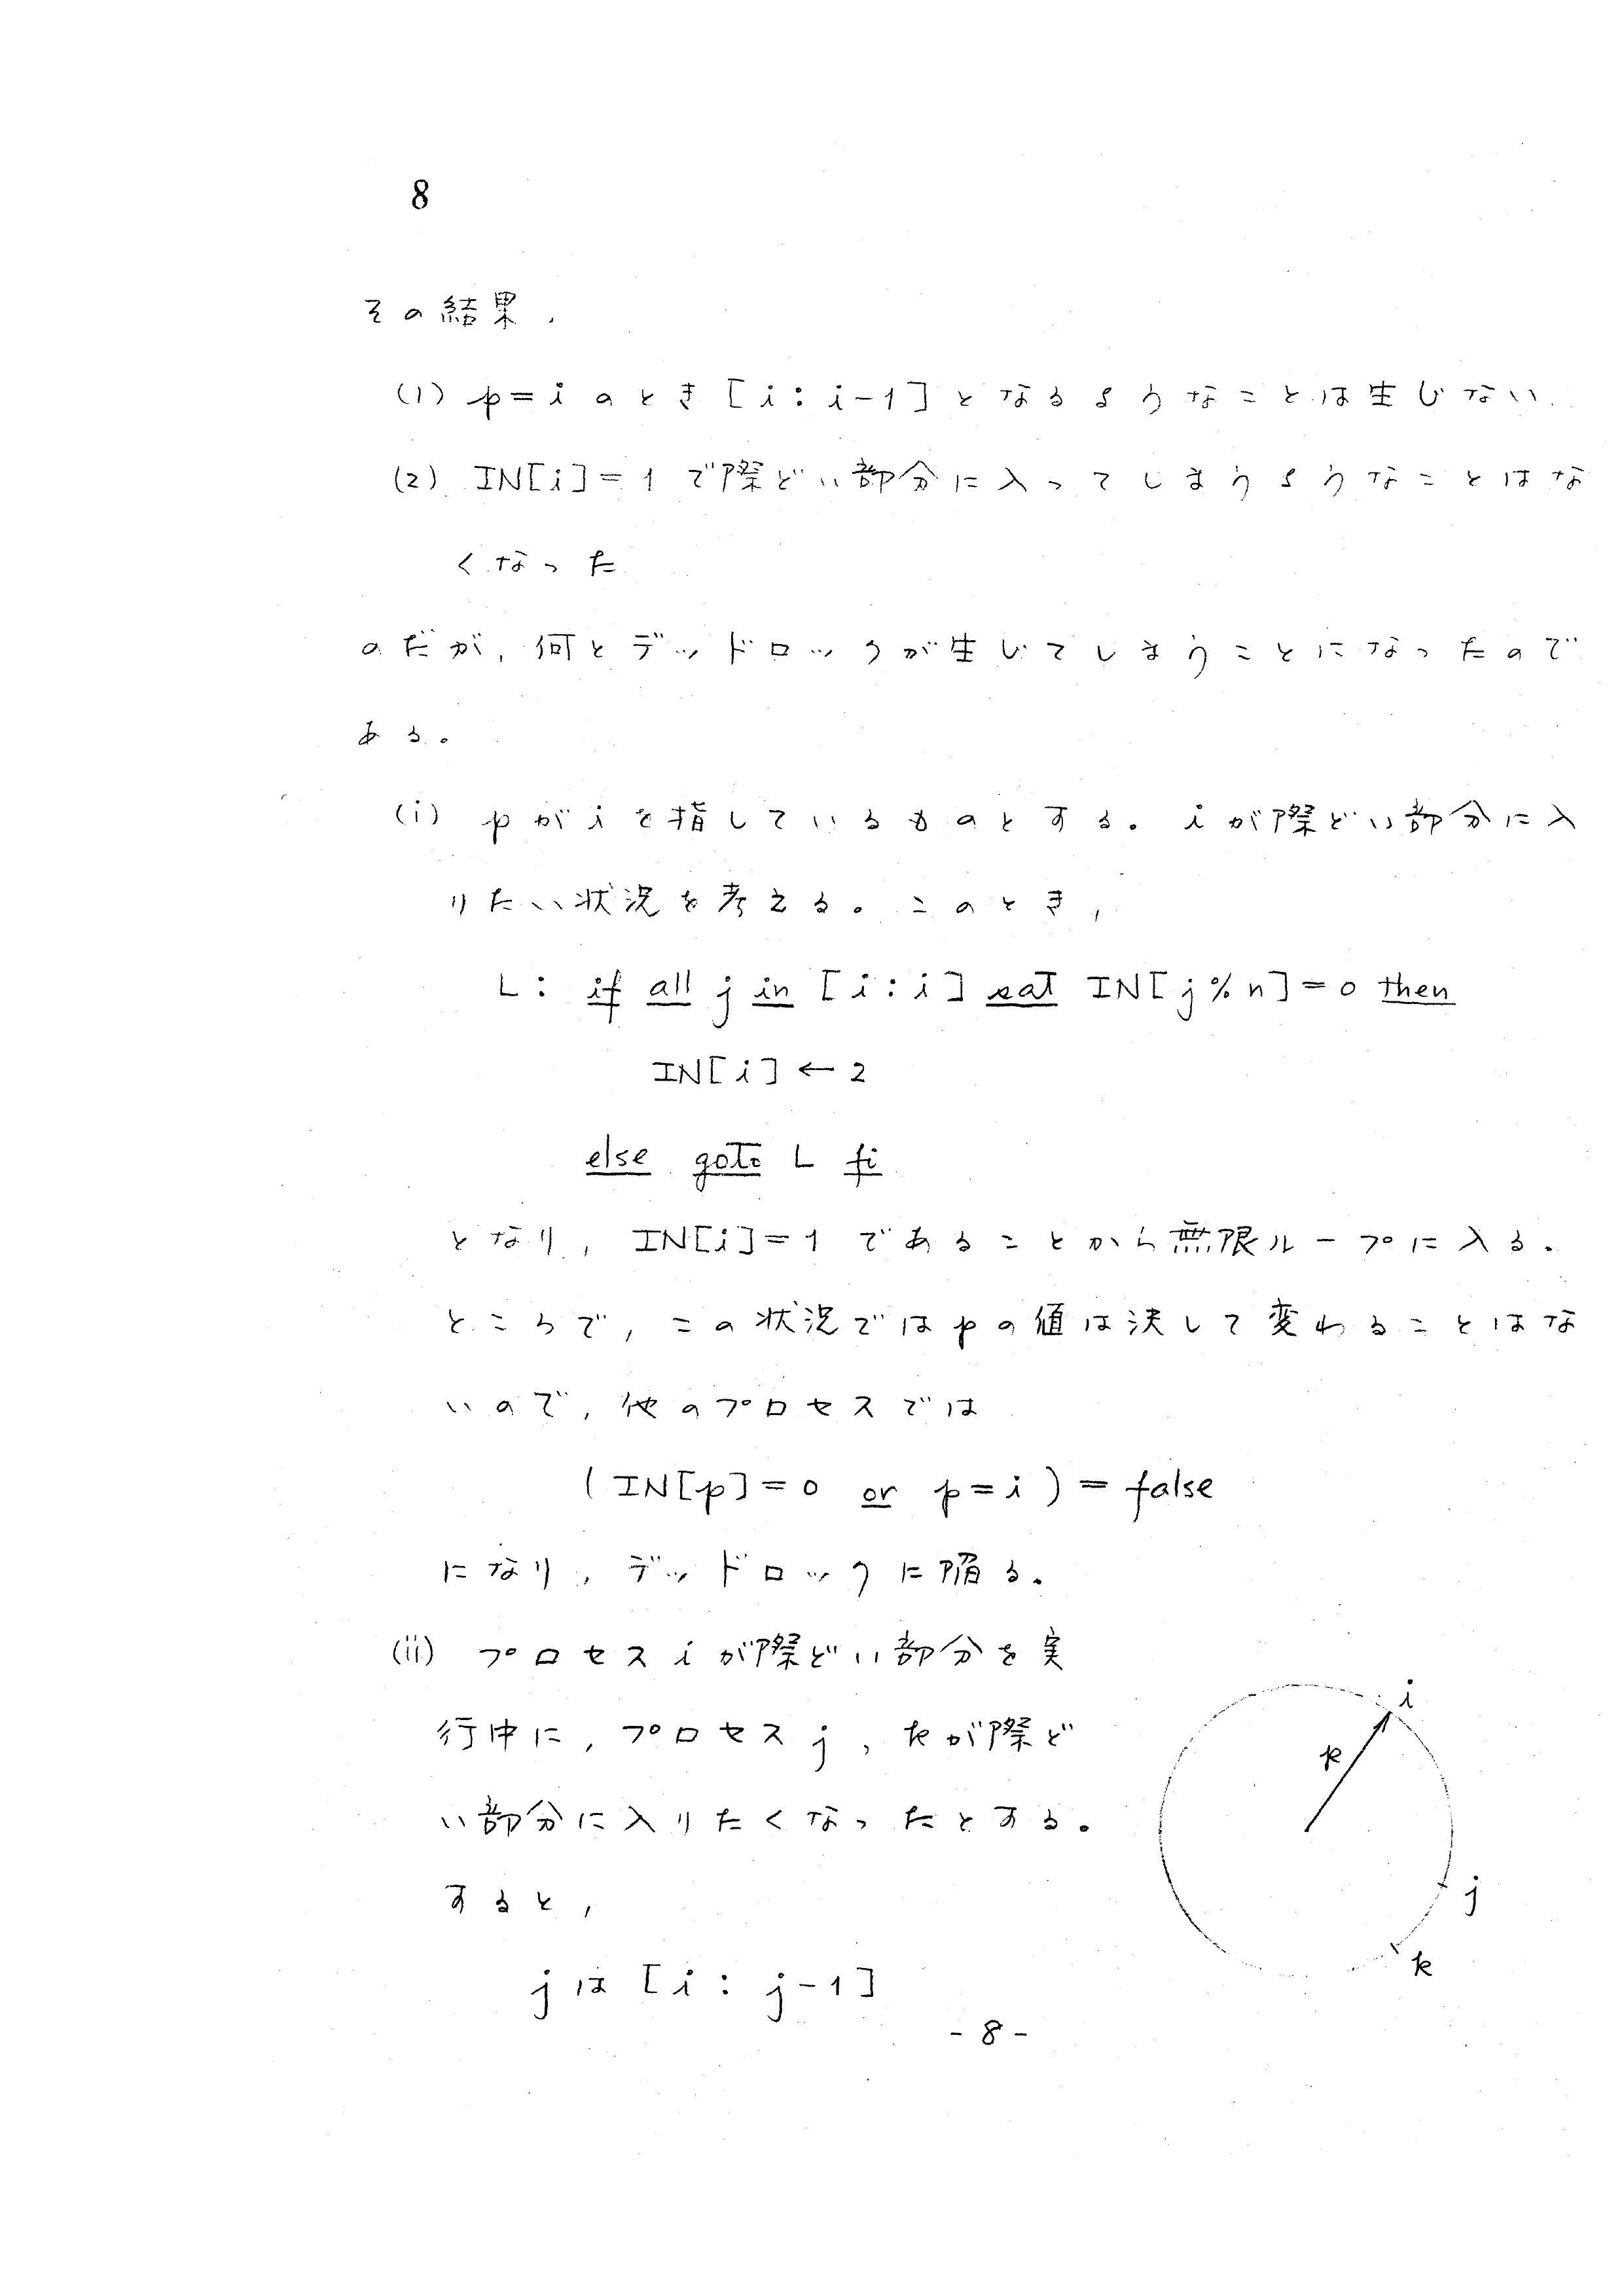 8
その結果,
(1) p=iのとき[i:i-1]となるようなことは生じない.
(2) IN[i]=1で際どい部分に入ってしまうようなことはな
くなった
のだが,何とデッドロックが生じてしまうことになったので
ある。
(i) pがiを指しているものとする。iが際どい部分に入
りたい状況を考える。このとき,
L: if all j in [i:i] sat IN[j%n]=0 then
IN[i]←2
else goto L fi
となり, IN[i]=1であることから無限ループに入る.
ところで,この状況ではpの値は決して変わることはな
いので,他のプロセスでは
(IN[p]=0 or p=i)=false
になり,デッドロックに陥る.
(ii) プロセスiが際どい部分を実
行中に,プロセスj,kが際ど
い部分に入りたくなったとする.
すると,
jは[i:j-1]
i
k
j
k
-8-